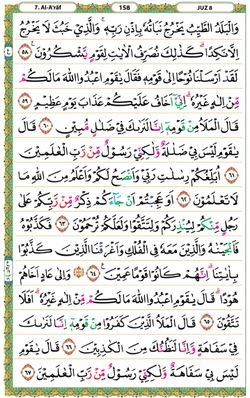 7. Al-A'râf 158 JUZ 8
وَالْبَلَدُ الطَّيِّبُ يَخْرُجُ نَبَاتُهُ بِإِذْنِ رَبِّهِ ۚ وَالَّذِي خَبُثَ لَا يَخْرُجُ
إِلَّا نَكِدًا ۚ كَذَٰلِكَ نُصَرِّفُ الْآيَٰتِ لِقَوْمٍ يَشْكُرُونَ ٥٨
لَقَدْ أَرْسَلْنَا نُوحًا إِلَىٰ قَوْمِهِ فَقَالَ يَٰقَوْمِ اعْبُدُوا اللَّهَ مَا لَكُمْ
مِنْ إِلَٰهٍ غَيْرُهُ إِنِّي أَخَافُ عَلَيْكُمْ عَذَابَ يَوْمٍ عَظِيمٍ ٥٩
قَالَ الْمَلَأُ مِنْ قَوْمِهِ إِنَّا لَنَرَىٰكَ فِي ضَلَٰلٍ مُبِينٍ ٦٠ قَالَ
يَٰقَوْمِ لَيْسَ بِي ضَلَٰلَةٌ وَلَٰكِنِّي رَسُولٌ مِنْ رَبِّ الْعَٰلَمِينَ ٦١
أُبَلِّغُكُمْ رِسَٰلَٰتِ رَبِّي وَأَنْصَحُ لَكُمْ وَأَعْلَمُ مِنَ اللَّهِ مَا
لَا تَعْلَمُونَ ٦٢ أَوَعَجِبْتُمْ أَنْ جَاءَكُمْ ذِكْرٌ مِنْ رَبِّكُمْ عَلَىٰ
رَجُلٍ مِنْكُمْ لِيُنْذِرَكُمْ وَلِتَتَّقُوا وَلَعَلَّكُمْ تُرْحَمُونَ ٦٣ فَكَذَّبُوهُ
فَأَنْجَيْنَٰهُ وَالَّذِينَ مَعَهُ فِي الْفُلْكِ وَأَغْرَقْنَا الَّذِينَ كَذَّبُوا
بِآيَٰتِنَا ۚ إِنَّهُمْ كَانُوا قَوْمًا عَمِينَ ٦٤ وَإِلَىٰ عَادٍ أَخَاهُمْ
هُودًا ۗ قَالَ يَٰقَوْمِ اعْبُدُوا اللَّهَ مَا لَكُمْ مِنْ إِلَٰهٍ غَيْرُهُ ۚ أَفَلَا
تَتَّقُونَ ٦٥ قَالَ الْمَلَأُ الَّذِينَ كَفَرُوا مِنْ قَوْمِهِ إِنَّا لَنَرَىٰكَ
فِي سَفَاهَةٍ وَإِنَّا لَنَظُنُّكَ مِنَ الْكَٰذِبِينَ ٦٦ قَالَ يَٰقَوْمِ
لَيْسَ بِي سَفَاهَةٌ وَلَٰكِنِّي رَسُولٌ مِنْ رَبِّ الْعَٰلَمِينَ ٦٧